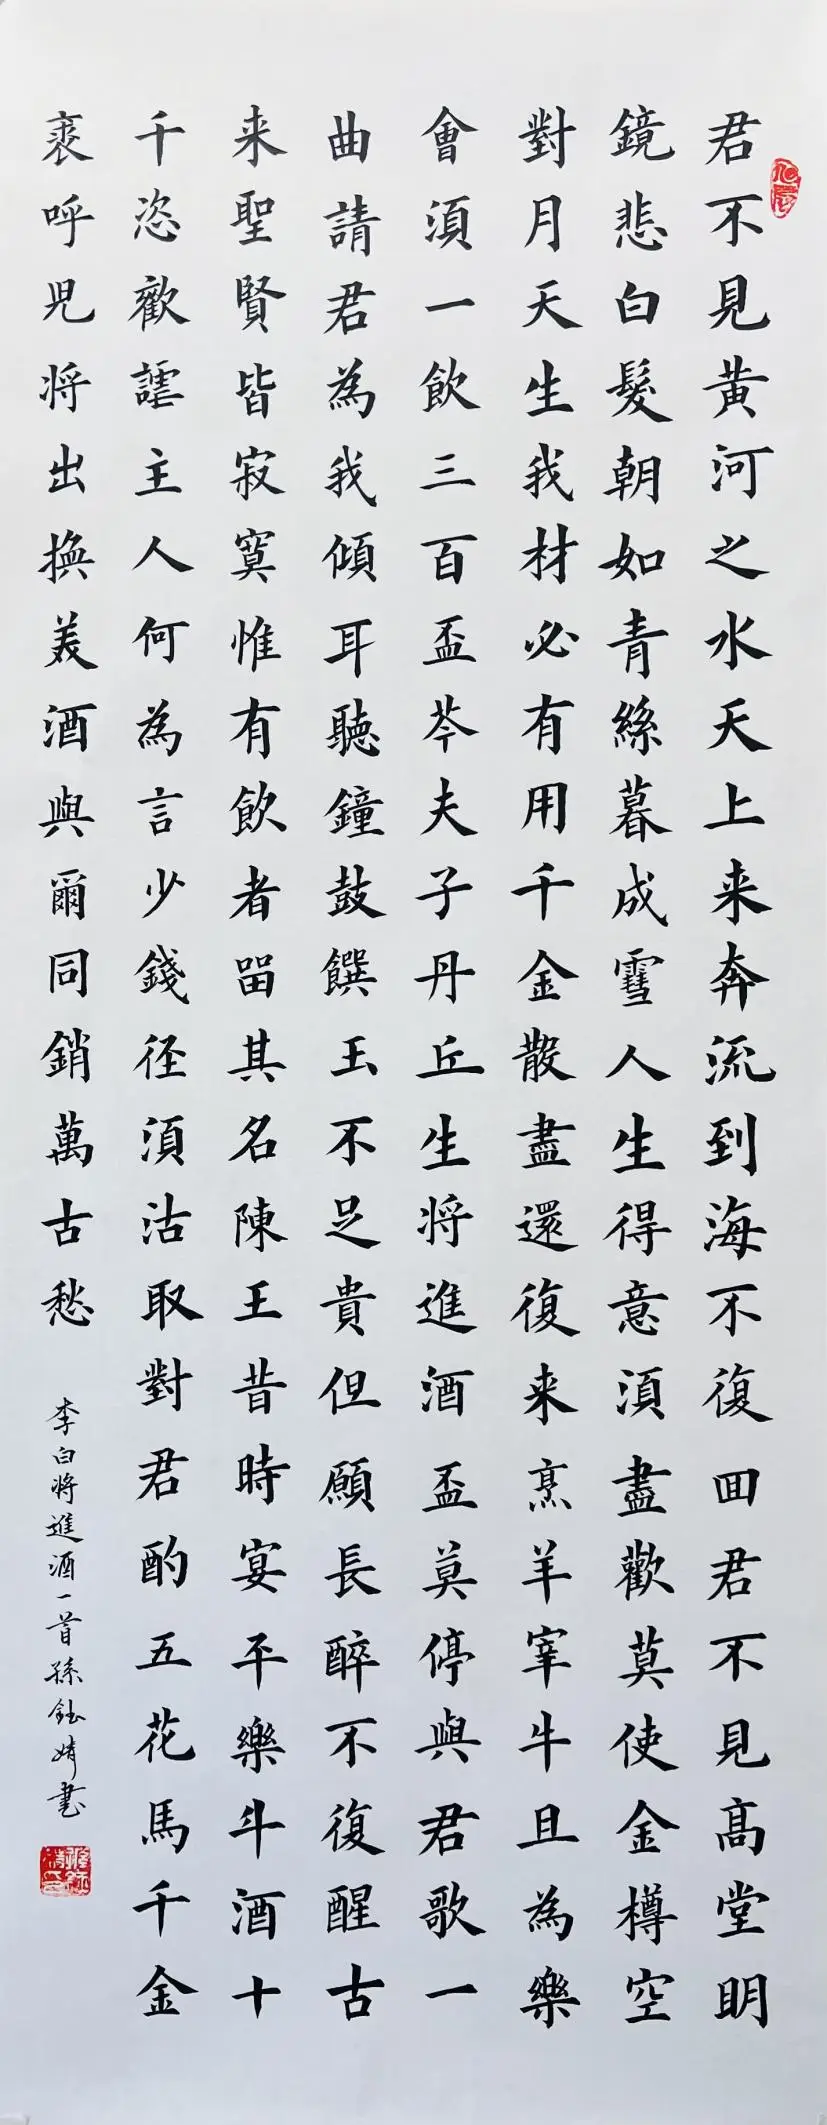 君不見黄河之水天上来奔流到海不復囬君不見髙堂明
鏡悲白髮朝如青絲暮成雪人生得意須盡歡莫使金樽空
對月天生我材必有用千金散盡還復来烹羊宰牛且為樂
會須一飲三百盃芩夫子丹丘生将進酒盃莫停與君歌一
曲請君為我傾耳聽鐘鼓饌玉不足貴但願長醉不復醒古
来聖賢皆寂寞惟有飲者留其名陳王昔時宴平樂斗酒十
千恣歡謔主人何為言少錢径須沽取對君酌五花馬千金
裘呼児将出換美酒與爾同銷萬古愁
李白将進酒一首孫鈺婧書